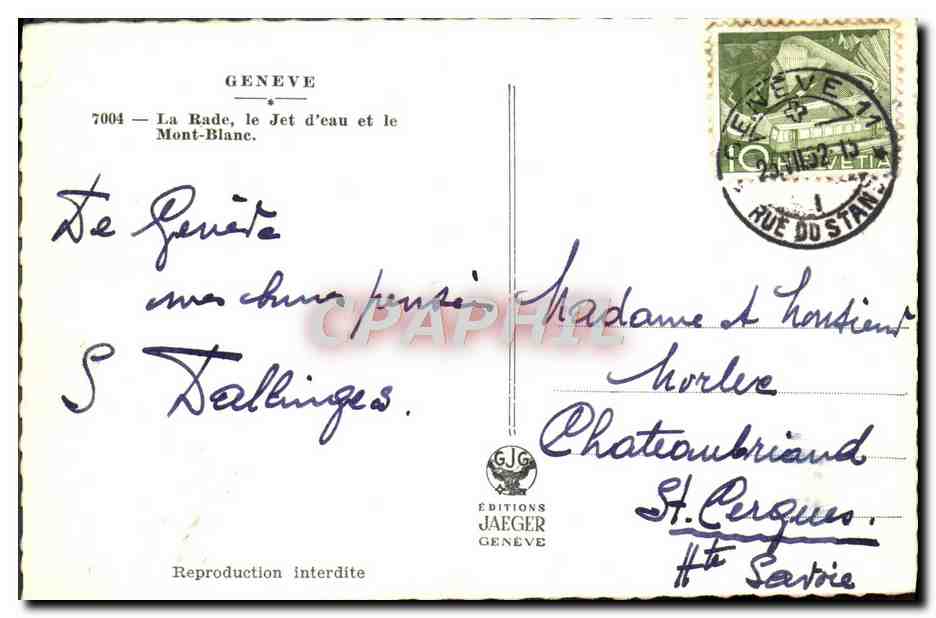 GENEVE
7004 — La Rade, le Jet d'eau et le
Mont-Blanc.
De Genève
mes bonnes pensées
S Dallinges.
GJG
ÉDITIONS
JAEGER
GENÈVE
Reproduction interdite
10 HELVETIA
GENÈVE 11
25.VII.52.-15
RUE DU STAND
Madame et Monsieur
Morlec
Chateaubriand
St. Cergues.
Hte Savoie
CPAPHIL